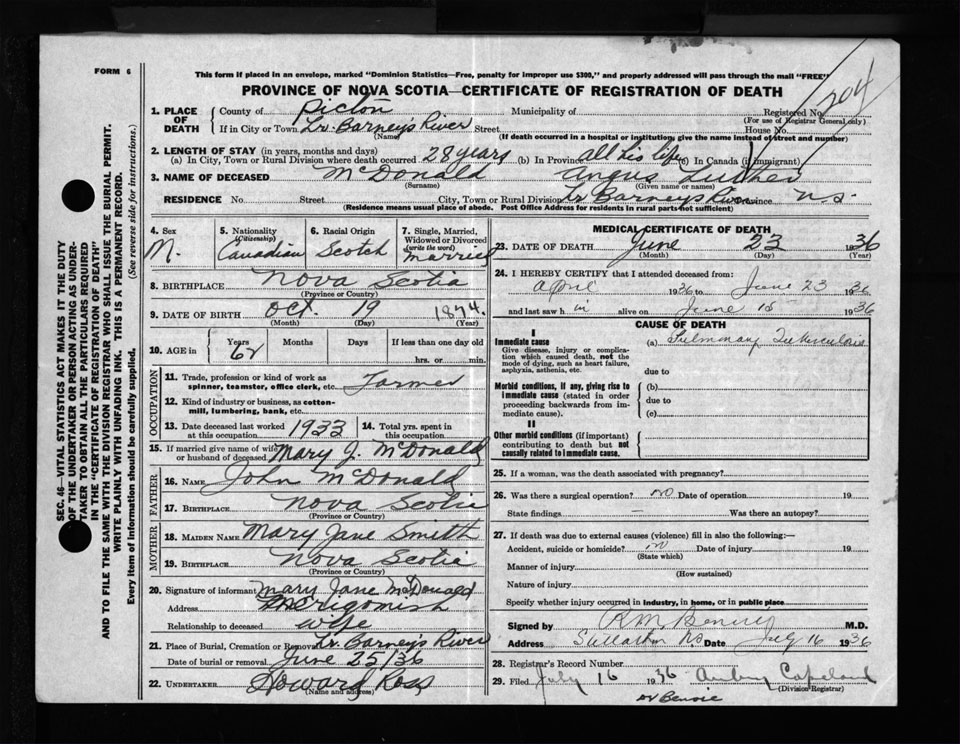 FORM 6
This form if placed in an envelope, marked "Dominion Statistics—Free, penalty for improper use $300," and properly addressed will pass through the mail "FREE"
PROVINCE OF NOVA SCOTIA—CERTIFICATE OF REGISTRATION OF DEATH
204
SEC. 46—VITAL STATISTICS ACT MAKES IT THE DUTY
OF THE UNDERTAKER OR PERSON ACTING AS UNDER-
TAKER TO OBTAIN ALL THE PARTICULARS REQUIRED
IN THE "CERTIFICATE OF REGISTRATION OF DEATH"
AND TO FILE THE SAME WITH THE DIVISION REGISTRAR WHO SHALL ISSUE THE BURIAL PERMIT.
WRITE PLAINLY WITH UNFADING INK. THIS IS A PERMANENT RECORD.
Every item of Information should be carefully supplied. (See reverse side for instructions.)
1. PLACE OF DEATH
County of Pictou Municipality of Registered No.
(For use of Registrar General only)
If in City or Town Lr. Barney's River Street House No.
(Name) (If death occurred in a hospital or institution, give the name instead of street and number)
2. LENGTH OF STAY (in years, months and days)
(a) In City, Town or Rural Division where death occurred 28 years (b) In Province all his life (c) In Canada (if immigrant)
3. NAME OF DECEASED McDonald Angus Luther
(Surname) (Given name or names)
RESIDENCE No. Street City, Town or Rural Division Lr Barneys River Province N.S
(Residence means usual place of abode. Post Office Address for residents in rural parts not sufficient)
4. Sex M.
5. Nationality (Citizenship) Canadian
6. Racial Origin Scotch
7. Single, Married, Widowed or Divorced (write the word) Married
8. BIRTHPLACE Nova Scotia
(Province or Country)
9. DATE OF BIRTH Oct. 19 1874.
(Month) (Day) (Year)
10. AGE in Years 62 Months Days If less than one day
hrs. or min.
OCCUPATION
11. Trade, profession or kind of work as
spinner, teamster, office clerk, etc. Farmer
12. Kind of industry or business, as cotton-
mill, lumbering, bank, etc.
13. Date deceased last worked
at this occupation 1933
14. Total yrs. spent in
this occupation
15. If married give name of wife
or husband of deceased Mary J. McDonald
FATHER
16. NAME John McDonald
17. BIRTHPLACE Nova Scotia
(Province or Country)
MOTHER
18. MAIDEN NAME Mary Jane Smith
19. BIRTHPLACE Nova Scotia
(Province or Country)
20. Signature of informant Mary Jane McDonald
Address Merigomish
Relationship to deceased wife
21. Place of Burial, Cremation or Removal Lr. Barney's River
Date of burial or removal June 25/36
22. UNDERTAKER Howard Ross
(Name and address)
MEDICAL CERTIFICATE OF DEATH
23. DATE OF DEATH June 23 1936
(Month) (Day) (Year)
24. I HEREBY CERTIFY that I attended deceased from:
April 1936 to June 23 1936
and last saw h im alive on June 15 1936
CAUSE OF DEATH
I
Immediate cause
Give disease, injury or complica-
tion which caused death, not the
mode of dying, such as heart failure,
asphyxia, asthenia, etc.
(a) Pulmonary Tuberculosis
due to
Morbid conditions, if any, giving rise to
immediate cause (stated in order
proceeding backwards from im-
mediate cause).
(b)
due to
(c)
II
Other morbid conditions (if important)
contributing to death but not
causally related to immediate cause.
25. If a woman, was the death associated with pregnancy?
26. Was there a surgical operation? no Date of operation 19
State findings — Was there an autopsy?
27. If death was due to external causes (violence) fill in also the following:—
Accident, suicide or homicide? no Date of injury 19
(State which)
Manner of injury
(How sustained)
Nature of injury
Specify whether injury occurred in industry, in home, or in public place
Signed by M.D.
Address N.S Date July 16 1936
28. Registrar's Record Number
29. Filed July 16 1936 Copeland
(Division Registrar)